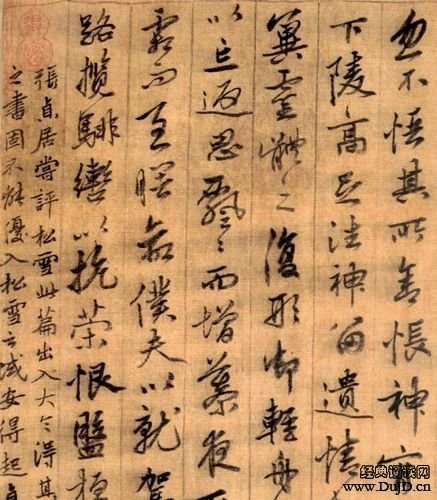 忽不悟其所舍悵神宵
下陵高足往神留遺情
冀靈體之復形御輕舟
以忘返思飄〻而增慕夜
霜而至曙命僕夫以就駕
路攬騑轡以抗策悵盤桓
張貞居嘗評松雪此篇出入大令得其
之書固不能優入松雪之域安得起貞
经典对联网
www.DuJD.cn